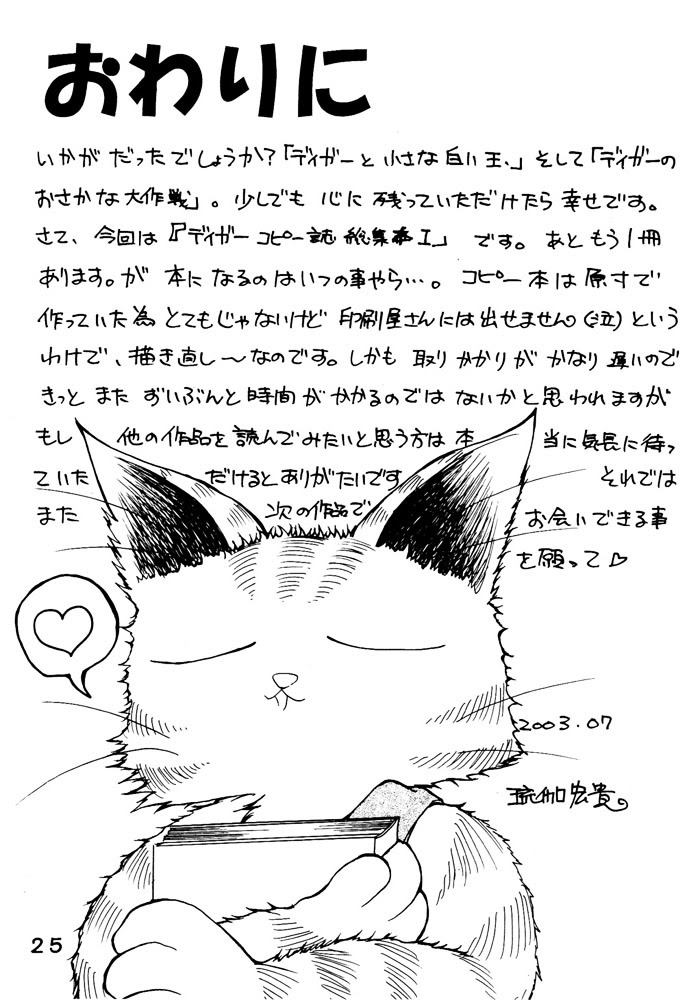 おわりに
いかがだったでしょうか?「ディガーと小さな白い玉、」そして「ディガーの
おさかな大作戦」。少しでも心に残っていただけたら幸せです。
さて、今回は『ディガーコピー誌総集本I』です。あともう1冊
あります。が本になるのはいつの事やら…。コピー本は原寸で
作っていた為とてもじゃないけど印刷屋さんには出せません(泣)という
わけで、描き直し〜なのです。しかも取りかかりがかなり遅いので
きっとまたずいぶんと時間がかかるのではないかと思われますが
もし他の作品を読んでみたいと思う方は本当に気長に待っ
ていただけるとありがたいですそれでは
また次の作品でお会いできる事
を願って♡
2003.07
宏貴。
25